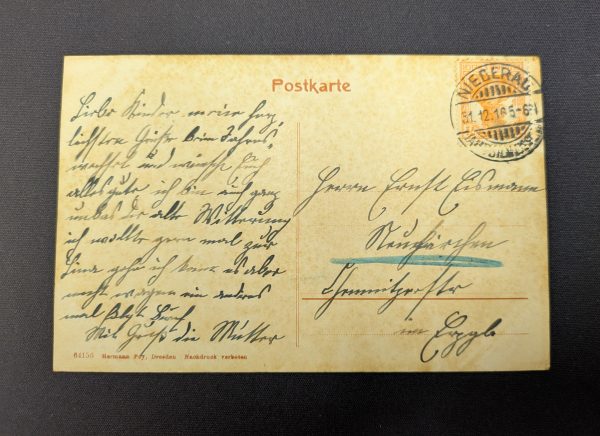 Postkarte
NIEDERAU
31.12.16.5-6N
Liebe Kinder meine herz
lichsten Grüße beim Jahres,
wechsel und wünsche Euch
alles gute ich bin auch ganz
alte Witterung
ich wollte gern mal zur
Lina gehn ich kann es aber
nicht wagen ein anderes
mal
Mit Gruß die Mutter
Herrn Ernst Eismann
Neukirchen
Chemnitzerstr
im Erzgb.
64156 Hermann Poy, Dresden Nachdruck verboten